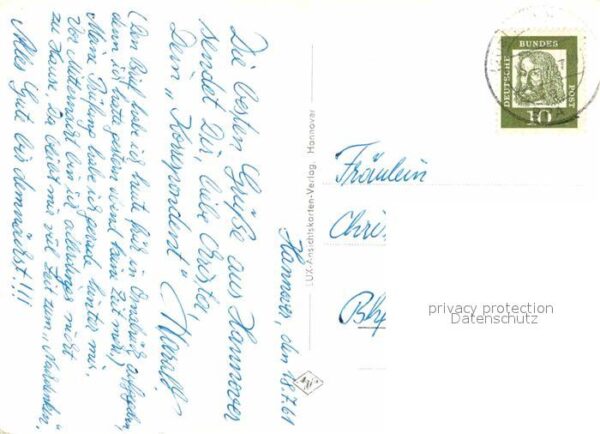 Hannover, den 18.7.61
Die besten Grüße aus Hannover
sendet Dir, liebe Christa
Dein „Korrespondent“ Harald
(Den Brief habe ich heute früh in Osnabrück aufgegeben,
denn ich hatte gestern abend kaum Zeit mehr.)
Meine Prüfung habe ich gerade hinter mir.
Vor Mitternacht bin ich allerdings nicht
zu Hause. Da bleibt mir viel Zeit zum „Nachdenken“.
Alles Gute bis demnächst!!!
LUX-Ansichtskarten-Verlag, Hannover
DEUTSCHE BUNDES POST
10
Fräulein
Chris
privacy protection
Datenschutz